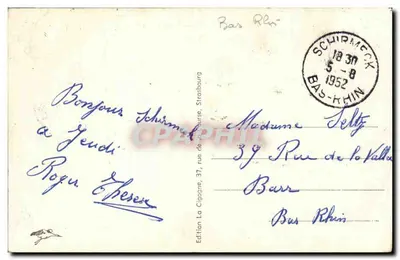 Bas Rhin
SCHIRMECK
18 30
5 - 8
1952
BAS-RHIN
Bonjour Schirmeck
a Jeudi
Roger Therese
Madame Seltz
39 Rue de la Vallée
Barr
Bas Rhin
Edition La Cigogne, 37, rue de la Course, Strasbourg
CPAPHIL